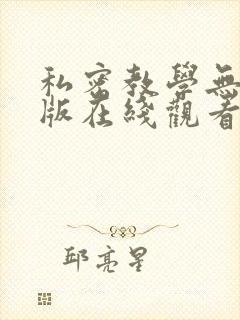 私密教學無
版在綫觀看
邱亮星